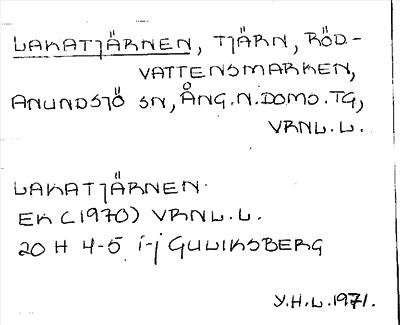 LAKATJÄRNEN, TJÄRN, RÖD-
VATTENSMARKEN,
ANUNDSJÖ SN, ÅNG.N.DOMS.TG,
VRNL.L.
LAKATJÄRNEN.
EK (1970) VRNL.L.
20 H 4-5 i-j GULIKSBERG
Y.H.L.1971.